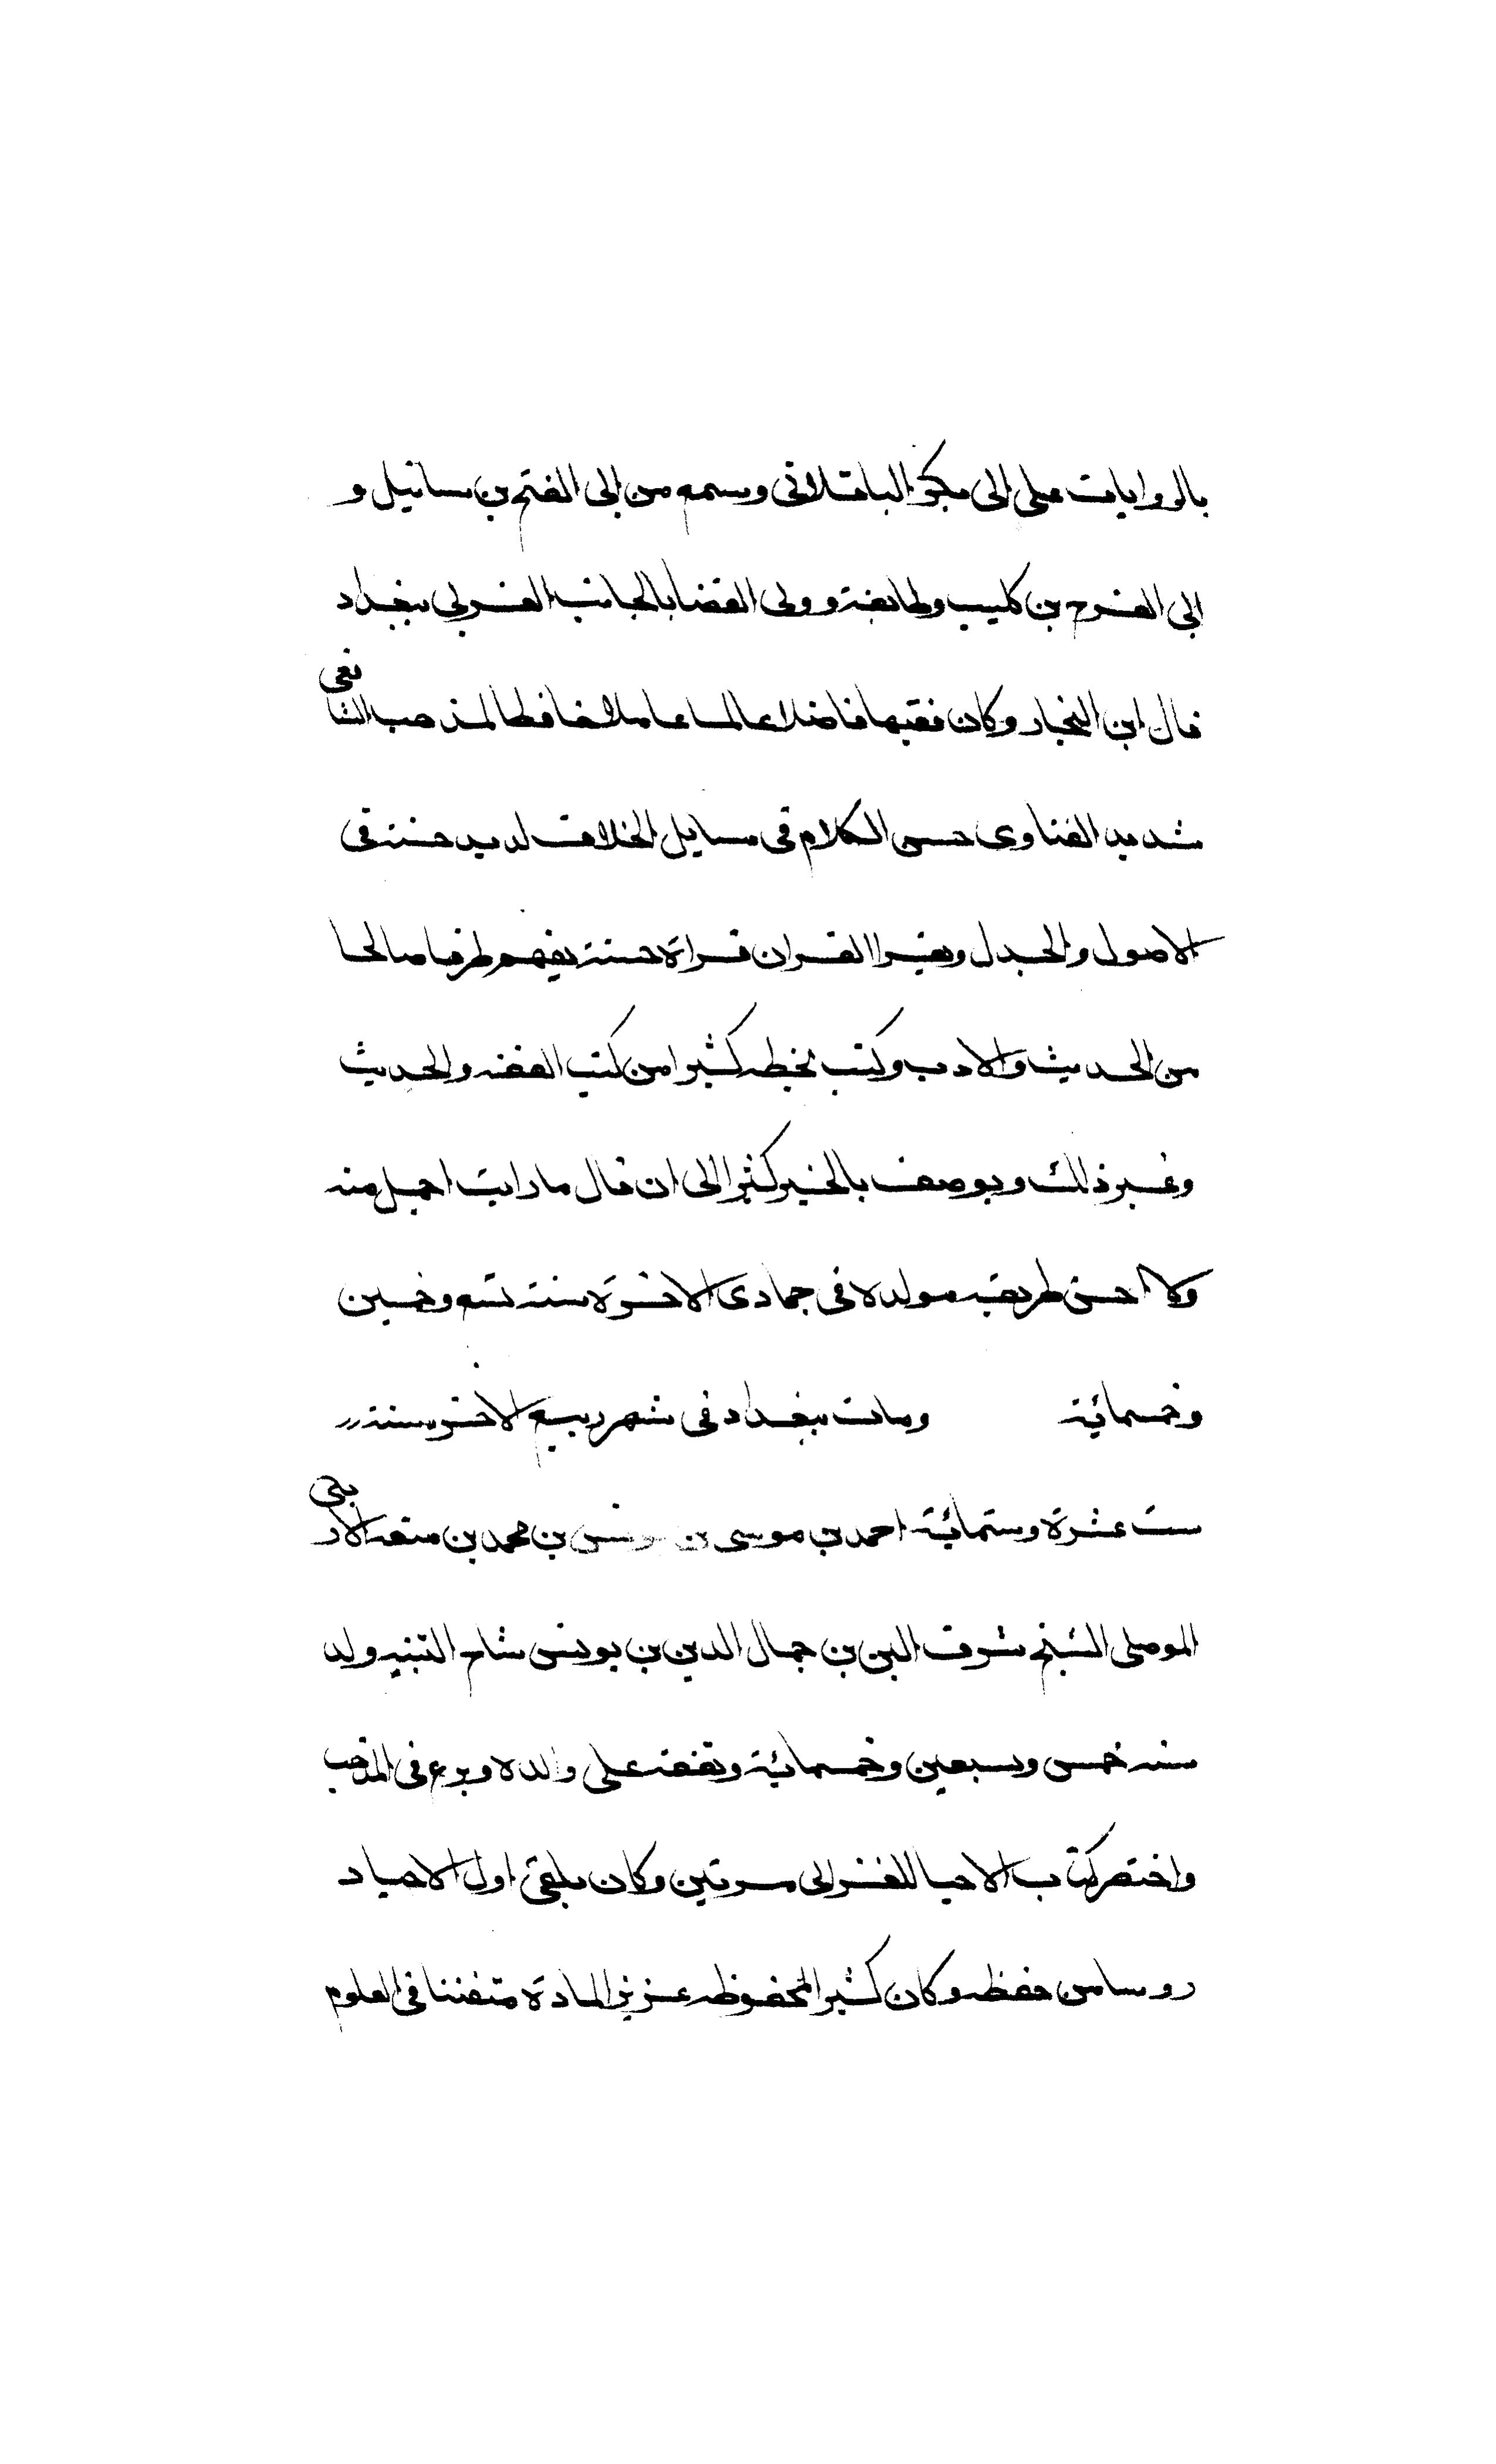 بالروايات على ابى بكر الباقلانى وسمع من ابى الفتح بن ساتيل و
ابى الفرج بن كليب وطايفة وولى القضا بالجانب الغربى ببغداد
قال ابن النجار وكان فقيها فاضلا عالما عاملا حافظا لمذهب الشافعى
شديد الفتاوى حسن الكلام فى مسايل الخلاف لديه حسنة فى
الاصول والجدل ويقرا القران قراة حسنة يفهم طرفا صالحا
من الحديث والادب وكتب بخطه كثيرا من كتب الفقه والحديث
وغير ذلك ويوصف بالخير كثيرا الى ان قال ما رايت اجمل منه
ولا احسن طريقه مولده فى جمادى الاخرة سنة تسع وخمسين
وخمسمائة ومات ببغداد فى شهر ربيع الاخر سنة
ست عشرة وستمائة احمد بن موسى بن يونس بن محمد بن منعه الاربلى
الموصلى الشيخ شرف الين بن جمال الدين بن يونس شارح التنبيه ولد
سنه خمس وسبعين وخمسمائة وتفقه على والده وبرع فى المذهب
واختصر كتاب الاحيا للغزالى مرتين وكان يلقى اول الاحياد
روسا من حفظه وكان كثير المحفوظه عزيز المادة متفننا فى العلوم